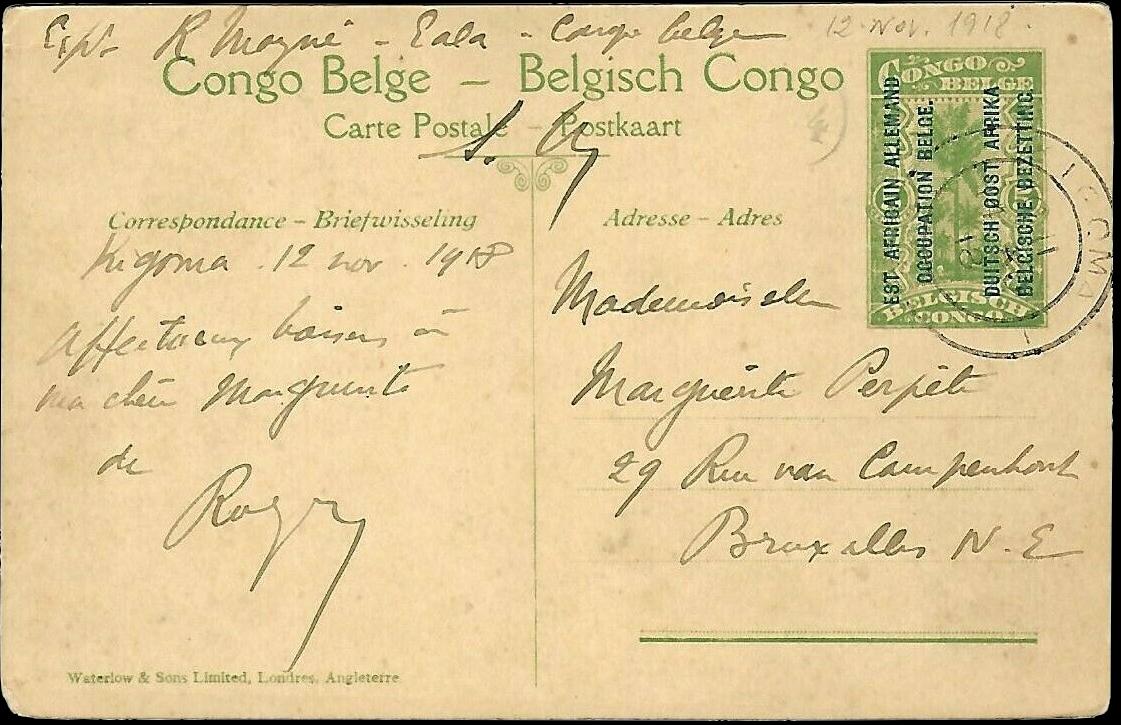 Exp. R Mayné - Eala - Congo belge
12. Nov. 1918.
Congo Belge – Belgisch Congo
Carte Postale – Postkaart
S.
Correspondance – Briefwisseling
Kigoma . 12 nov . 1918
Affectueux baisers à
ma chère Marguerite
de
Roger
Waterlow & Sons Limited, Londres, Angleterre
Adresse – Adres
Mademoiselle
Marguerite Perpète
29 Rue van Campenhout
Bruxelles N. E
CONGO
BELGE
EST AFRICAIN ALLEMAND
OCCUPATION BELGE.
DUITSCH OOST AFRIKA
BELGISCHE BEZETTING.
BELGISCH
CONGO
IGOMA